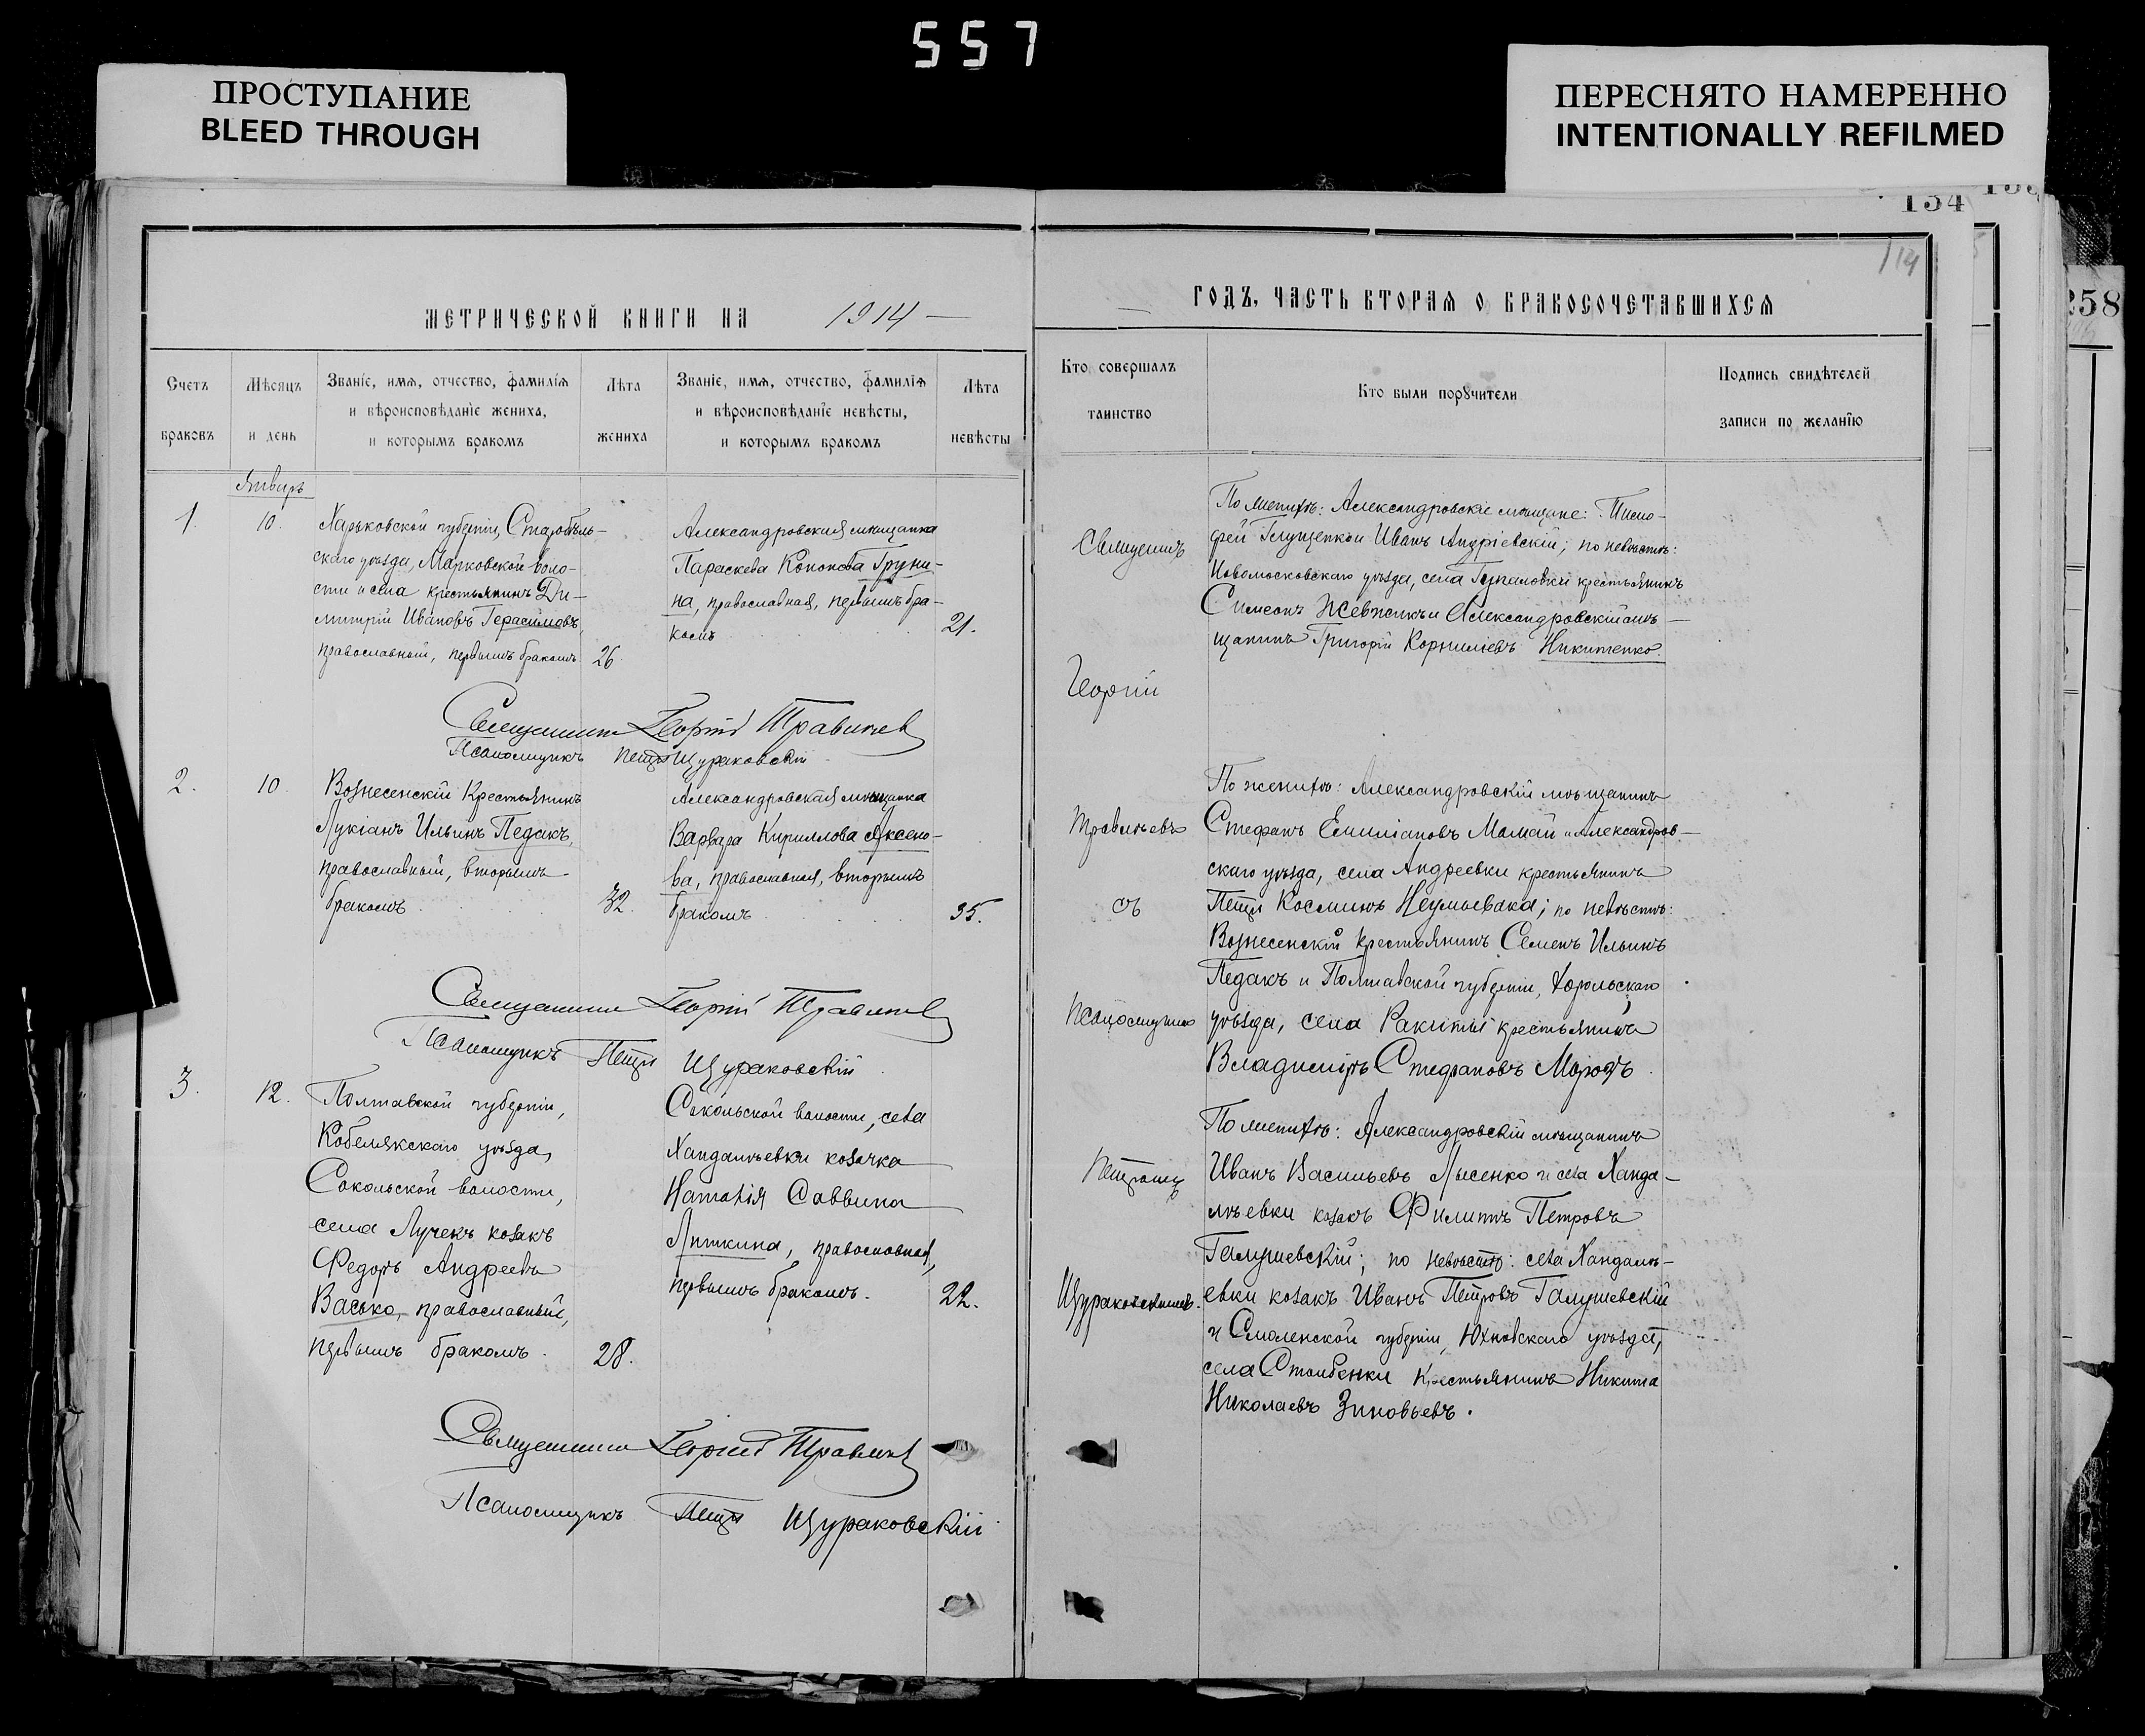 557
ПРОСТУПАНИЕ
BLEED THROUGH
ПЕРЕСНЯТО НАМЕРЕННО
INTENTIONALLY REFILMED
134
114
258
МЕТРИЧЕСКОЙ КНИГИ НА 1914
Счетъ браковъ
Мѣсяцъ и день
Званіе, имя, отчество, фамилія
и вѣроисповѣданіе жениха,
и которымъ бракомъ
Лѣта жениха
Званіе, имя, отчество, фамилія
и вѣроисповѣданіе невѣсты,
и которымъ бракомъ
Лѣта невѣсты
Январь
1.
10.
Харьковской губерніи, Старобѣль-
скаго уѣзда, Марковской воло-
сти и села крестьянинъ Ди-
митрій Ивановъ Герасимовъ,
православный, первымъ бракомъ.
26.
Александровская мѣщанка
Параскева Кононова Груни-
на, православная, первымъ бра-
комъ
21.
Священникъ Георгій Травинев
Псаломщикъ Петръ Щураковскій
2.
10.
Вознесенскій Крестьянинъ
Лукіанъ Ильинъ Педакъ,
православный, вторымъ
бракомъ
32.
Александровская мѣщанка
Варвара Кириллова Аксено-
ва, православная, вторымъ
бракомъ
35.
Священникъ Георгій
Псаломщикъ Петръ Щураковскій
3.
12.
Полтавской губерніи,
Кобелякскаго уѣзда,
Сокольской волости,
села Лучекъ козакъ
Федоръ Андреевъ
Васько, православный,
первымъ бракомъ.
28.
Сокольской волости, села
Хандалѣевки козачка
Наталія Саввина
Липкина, православная,
первымъ бракомъ.
22.
Священникъ Георгій
Псаломщикъ Петръ Щураковскій
ГОДЪ, ЧАСТЬ ВТОРАЯ О БРАКОСОЧЕТАВШИХСЯ
Кто совершалъ
таинство
Кто были поручители
Подпись свидѣтелей
записи по желанію
Священникъ
Георгій
съ
Псаломщикомъ
Петромъ
Щураковскимъ.
По женихѣ: Александровскіе мѣщане: Тимо-
фей Глущенко и Иванъ Андріевскій; по невѣстѣ:
Новомосковскаго уѣзда, села крестьянинъ
Симеонъ и Александровскій мѣ-
щанинъ Григорій Корниліевъ Никитенко.
По женихѣ: Александровскій мѣщанинъ
Стефанъ Емиліановъ Мамай и Александров-
скаго уѣзда, села Андреевки крестьянинъ
Петръ Косминъ Неумывака; по невѣстѣ:
Вознесенскій крестьянинъ Семенъ Ильинъ
Педакъ и Полтавской губерніи, Хорольскаго
уѣзда, села крестьянинъ
Владиміръ Стефановъ Морозъ.
По женихѣ: Александровскій мѣщанинъ
Иванъ Васильевъ Лысенко и села Ханда-
лѣевки козакъ Филиппъ Петровъ
Галушевскій; по невѣстѣ: села Хандалѣ-
евки козакъ Иванъ Петровъ Галушевскій
и Смоленской губерніи, Юхновскаго уѣзда,
села Столбенки крестьянинъ Никита
Николаевъ Зиновьевъ.